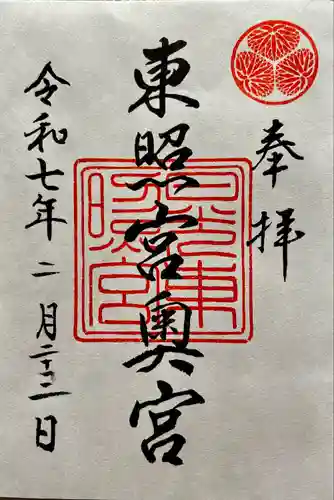 奉拝
東照宮奥宮
令和七年二月二十二日
日光東照宮